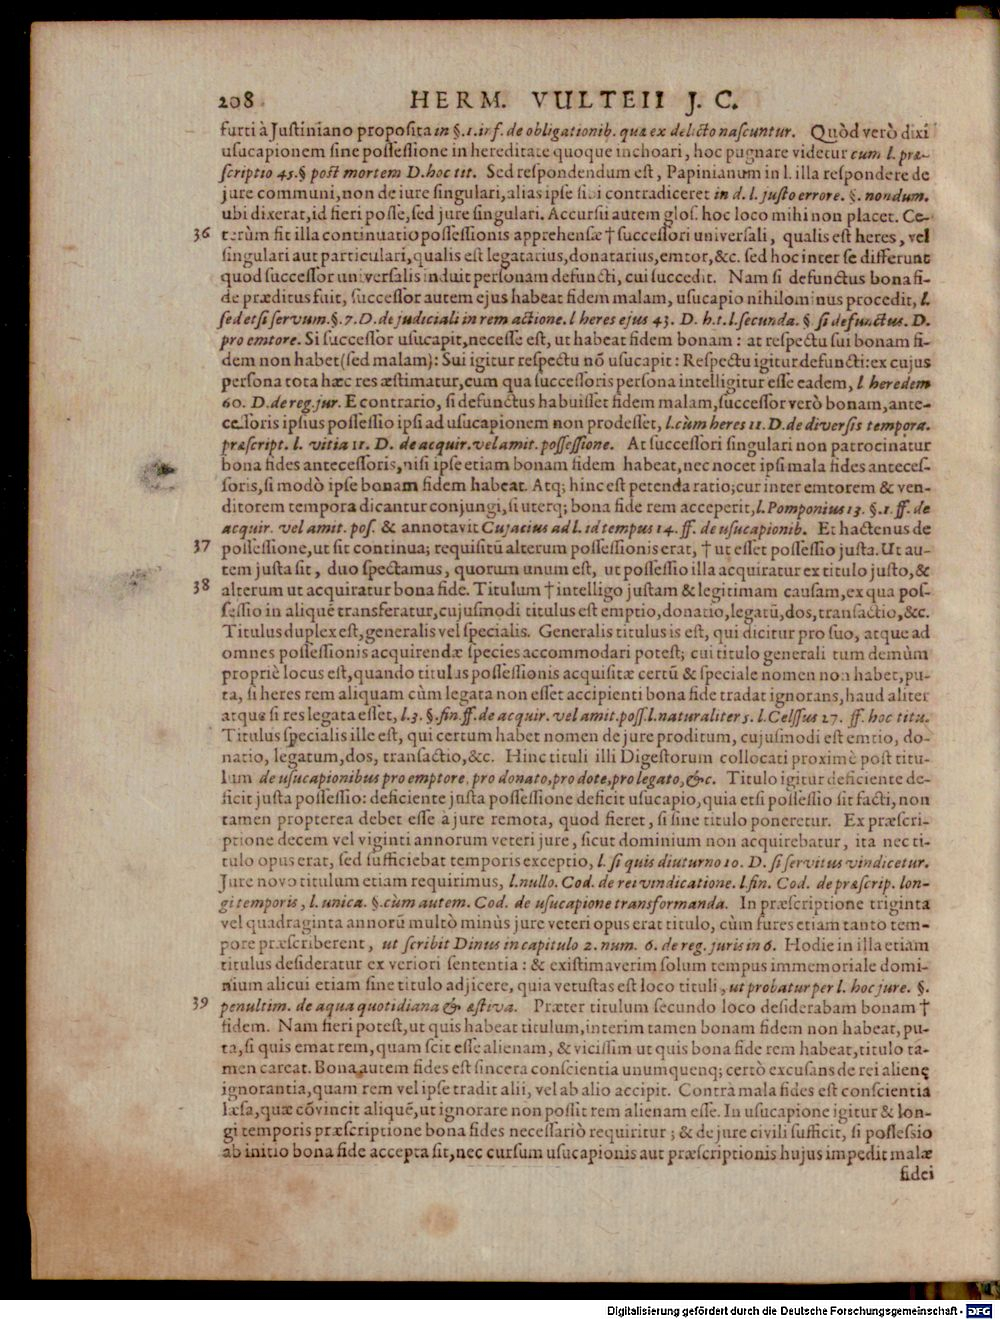 208 HERM. VULTEII J. C.
furti à Justiniano proposita in §.1. inf. de obligationib. quæ ex delicto nascuntur. Quòd verò dixi
usucapionem sine possessione in hereditate quoque inchoari, hoc pugnare videtur cum l. præ-
scriptio 45.§ post mortem D. hoc tit. Sed respondendum est, Papinianum in l. illa respondere de
jure communi, non de iure singulari, alias ipse sibi contradiceret in d. l. justo errore. §. nondum.
ubi dixerat, id fieri posse, sed jure singulari. Accursii autem glos. hoc loco mihi non placet. Ce-
36 terùm fit illa continuatio possessionis apprehensæ † successori universali, qualis est heres, vel
singulari aut particulari, qualis est legatarius, donatarius, emtor, &c. sed hoc inter se differunt
quod successor universalis induit personam defuncti, cui succedit. Nam si defunctus bona fi-
de præditus fuit, successor autem ejus habeat fidem malam, usucapio nihilominus procedit, l.
sed etsi servum.§.7. D. de judiciali in rem actione. l heres ejus 43. D. h.t. l. secunda. § si defunctus. D.
pro emtore. Si successor usucapit, necesse est, ut habeat fidem bonam : at respectu sui bonam fi-
dem non habet (sed malam): Sui igitur respectu nō usucapit : Respectu igitur defuncti: ex cujus
persona tota hæc res æstimatur, cum qua successoris persona intelligitur esse eadem, l heredem
60. D. de reg. jur. E contrario, si defunctus habuisset fidem malam, successor verò bonam, ante-
cessoris ipsius possessio ipsi ad usucapionem non prodesset, l. cùm heres 11. D. de diversis tempora.
præscript. l. vitia 11. D. de acquir. vel amit. possessione. At successori singulari non patrocinatur
bona fides antecessoris, nisi ipse etiam bonam fidem habeat, nec nocet ipsi mala fides anteces-
soris, si modò ipse bonam fidem habeat. Atq; hinc est petenda ratio; cur inter emtorem & ven-
ditorem tempora dicantur conjungi, si uterq; bona fide rem acceperit, l. Pomponius 13. §.1. ff. de
acquir. vel amit. pos. & annotavit Cujacius ad l. id tempus 14. ff. de usucapionib. Et hactenus de
37 possessione, ut sit continua; requisitū alterum possessionis erat, † ut esset possessio justa. Ut au-
tem justa sit, duo spectamus, quorum unum est, ut possessio illa acquiratur ex titulo justo, &
38 alterum ut acquiratur bona fide. Titulum † intelligo justam & legitimam causam, ex qua pos-
sessio in aliquē transferatur, cujusmodi titulus est emptio, donatio, legatū, dos, transactio, &c.
Titulus duplex est, generalis vel specialis. Generalis titulus is est, qui dicitur pro suo, atque ad
omnes possessionis acquirendæ species accommodari potest; cui titulo generali tum demùm
propriè locus est, quando titulus possessionis acquisitæ certū & speciale nomen non habet, pu-
ta, si heres rem aliquam cùm legata non esset accipienti bona fide tradat ignorans, haud aliter
atque si res legata esset, l.3. §. fin. ff. de acquir. vel amit. poss. l. naturaliter 5. l. Celssus 27. ff. hoc titu.
Titulus specialis ille est, qui certum habet nomen de jure proditum, cujusmodi est emtio, do-
natio, legatum, dos, transactio, &c. Hinc tituli illi Digestorum collocati proximè post titu-
lum de usucapionibus pro emptore, pro donato, pro dote, pro legato, &c. Titulo igitur deficiente de-
ficit justa possessio: deficiente justa possessione deficit usucapio, quia etsi possessio sit facti, non
tamen propterea debet esse à jure remota, quod fieret, si sine titulo poneretur. Ex præscri-
ptione decem vel viginti annorum veteri jure, sicut dominium non acquirebatur, ita nec ti-
tulo opus erat, sed sufficiebat temporis exceptio, l. si quis diuturno 10. D. si servitus vindicetur.
Jure novo titulum etiam requirimus, l. nullo. Cod. de rei vindicatione. l. fin. Cod. de præscrip. lon-
gi temporis, l. unica. §. cùm autem. Cod. de usucapione transformanda. In præscriptione triginta
vel quadraginta annorū multò minùs jure veteri opus erat titulo, cùm fures etiam tanto tem-
pore præscriberent, ut scribit Dinus in capitulo 2. num. 6. de reg. juris in 6. Hodie in illa etiam
titulus desideratur ex veriori sententia : & existimaverim solum tempus immemoriale domi-
nium alicui etiam sine titulo adjicere, quia vetustas est loco tituli, ut probatur per l. hoc jure. §.
39 penultim. de aqua quotidiana & æstiva. Præter titulum secundo loco desiderabam bonam †
fidem. Nam fieri potest, ut quis habeat titulum, interim tamen bonam fidem non habeat, pu-
ta, si quis emat rem, quam scit esse alienam, & vicissim ut quis bona fide rem habeat, titulo ta-
men careat. Bona autem fides est sincera conscientia unumquenq; certò excusans de rei alienę
ignorantia, quam rem vel ipse tradit alii, vel ab alio accipit. Contrà mala fides est conscientia
læsa, quæ cōvincit aliquē, ut ignorare non possit rem alienam esse. In usucapione igitur & lon-
gi temporis præscriptione bona fides necessariò requiritur ; & de jure civili sufficit, si possessio
ab initio bona fide accepta sit, nec cursum usucapionis aut præscriptionis hujus impedit malæ
fidei
Digitalisierung gefördert durch die Deutsche Forschungsgemeinschaft - DFG